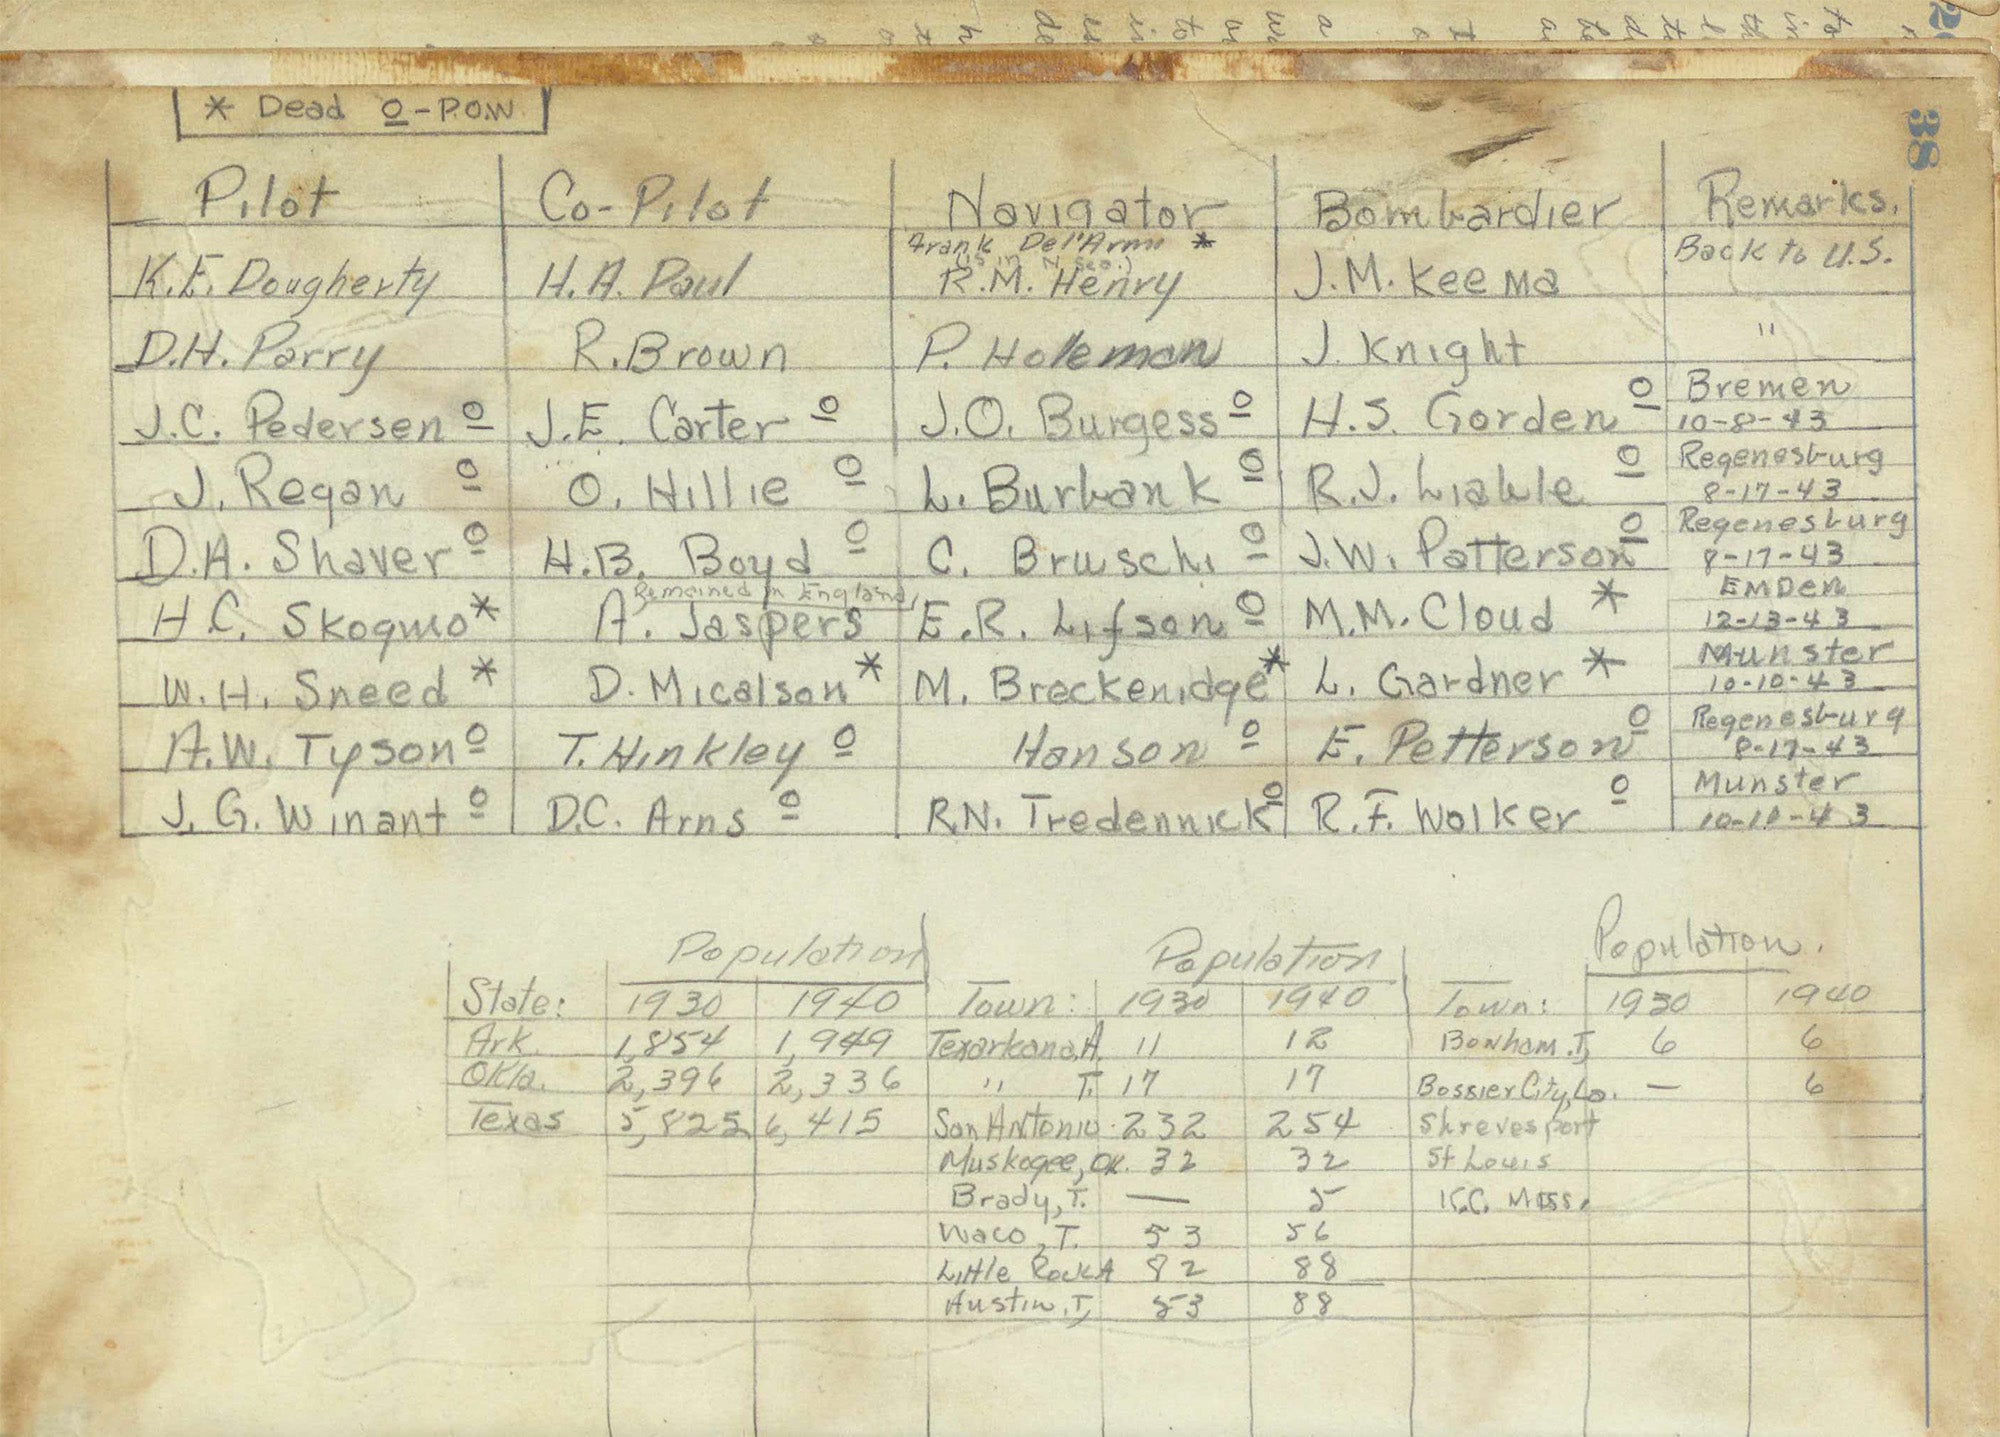 * Dead o - P.O.W
38
Pilot Co-Pilot Navigator Bombardier Remarks.
Frank Del'Armi *
K.E. Dougherty H.A. Paul R.M. Henry J.M. Keema Back to U.S.
D.H. Parry R. Brown P. Holeman J. Knight "
J.C. Pedersen o J.E. Carter o J.O. Burgess o H.S. Gorden o Bremen
10-8-43
J. Regan o O. Hillie o L. Burbank o R.J. Liable o Regenesburg
8-17-43
D.A. Shaver o H.B. Boyd o C. Bruschi o J.W. Patterson o Regenesburg
8-17-43
Remained in England
H.C. Skogmo * A. Jaspers E.R. Lifson o M.M. Cloud * Emden
12-13-43
W.H. Sneed * D. Micalson * M. Breckenidge * L. Gardner * Munster
10-10-43
A.W. Tyson o T. Hinkley o Hanson o E. Petterson o Regenesburg
8-17-43
J.G. Winant o D.C. Arns o R.N. Tredennick o R.F. Wolker o Munster
10-10-43
Population Population Population.
State: 1930 1940 Town: 1930 1940 Town: 1930 1940
Ark. 1,854 1,949 Texarkana, A. 11 12 Bonham, T. 6 6
Okla. 2,396 2,336 " T. 17 17 Bossier City, La. — 6
Texas 5,825 6,415 San Antonio 232 254 Shrevesport
Muskogee, OK. 32 32 St Louis
Brady, T. — 5 K.C. Miss.
Waco, T. 53 56
Little Rock A 82 88
Austin, T. 53 88